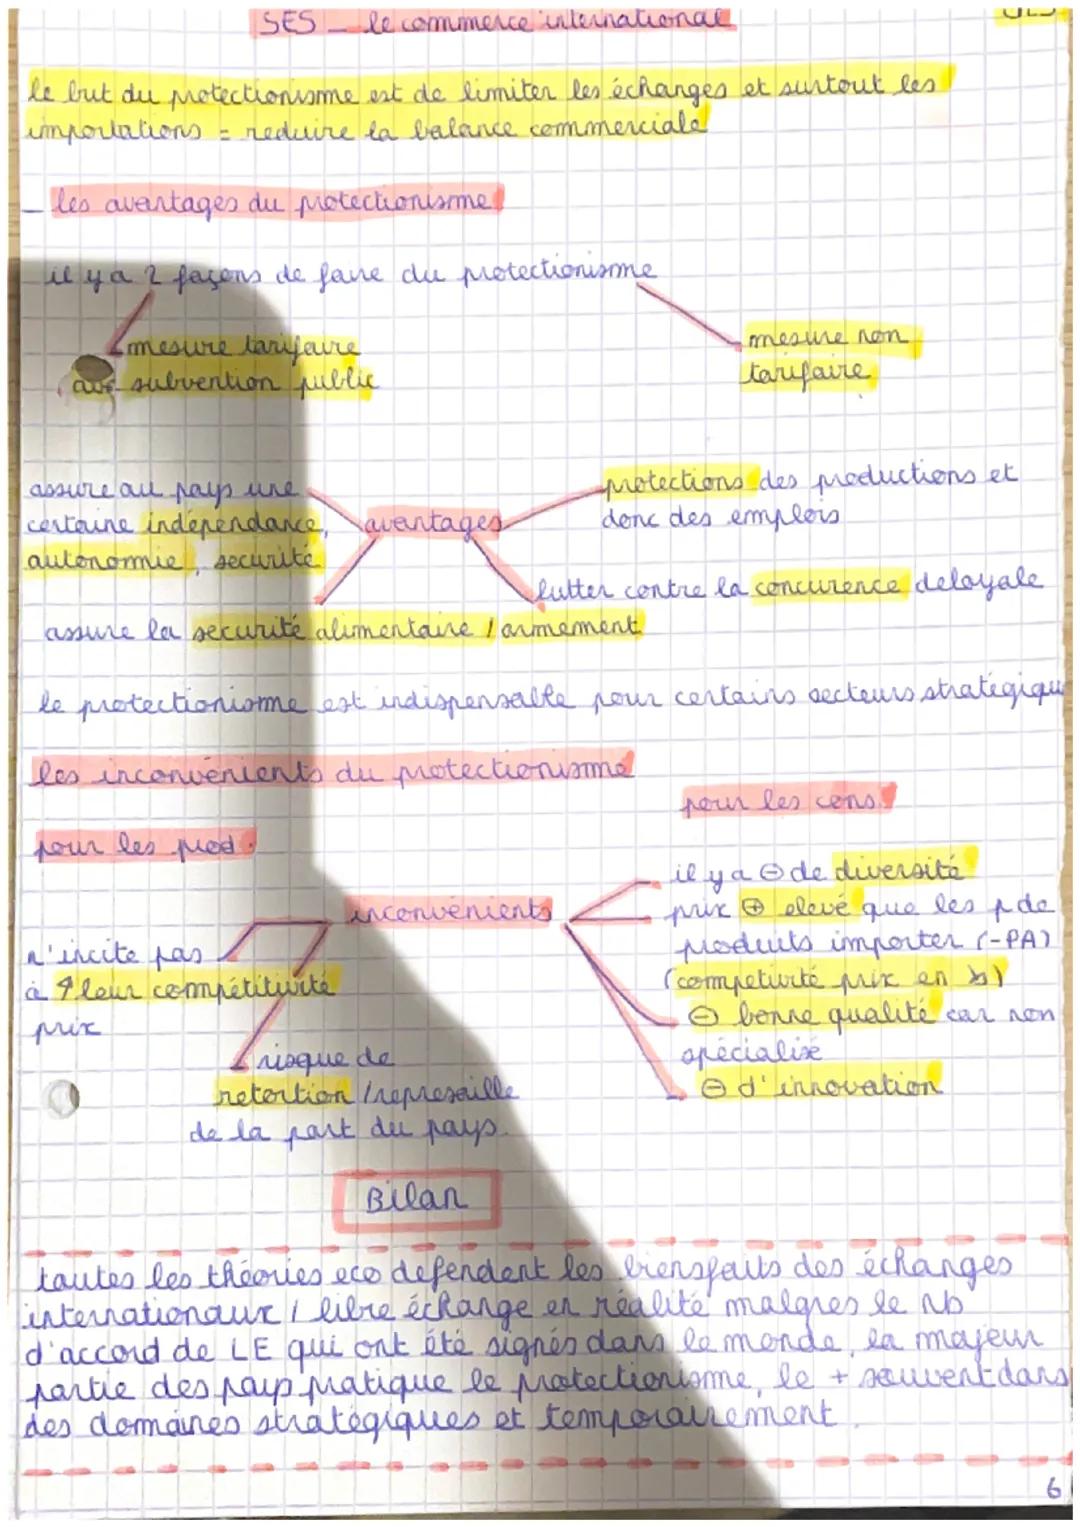 SES _ le commerce international
le but du protectionisme est de limiter les échanges et surtout les
importations = reduire la balance commerciale
_ les avantages du protectionisme
il y a 2 façons de faire du protectionisme
mesure tarifaire
subvention public
mesure non
tarifaire
assure au pays une
certaine indépendance,
autonomie, securité
avantages
protections des productions et
donc des emplois
lutter contre la concurence deloyale
assure la securité alimentaire / armement
le protectionisme est indispensable pour certains secteurs stratégiqu
les inconvénients du protectionisme
pour les prod.
pour les cons.
inconvénients
n'incite pas
à ↑ leur compétitivité
prix
risque de
retortion / represaille
de la part du pays.
il y a ⊖ de diversité
prix ⊕ elevé que les p de
produits importer (-PA)
(competivité prix en ↘)
⊖ bonne qualité car non
spécialisé
⊖ d'innovation
Bilan
toutes les théories eco defendent les biensfaits des échanges
internationaux / libre échange en réalité malgres le nb
d'accord de LE qui ont été signés dans le monde, la majeur
partie des pays pratique le protectionisme, le + souvent dans
des domaines stratégiques et temporairement.
6